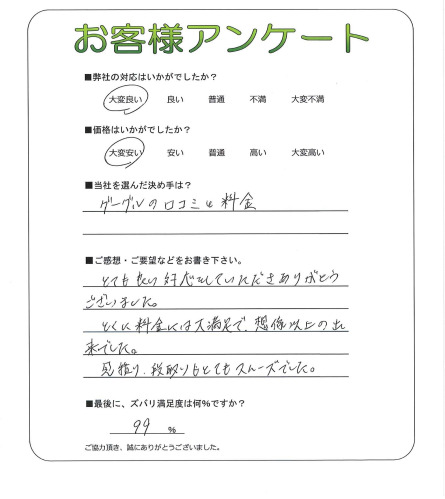 お客様アンケート
■弊社の対応はいかがでしたか?
大変良い 良い 普通 不満 大変不満
■価格はいかがでしたか?
大変安い 安い 普通 高い 大変高い
■当社を選んだ決め手は?
グーグルの口コミと料金
■ご感想・ご要望などをお書き下さい。
とても良い対応をしていただきありがとう
ございました。
とくに料金には大満足で、想像以上の出
来でした。
見積り、段取りもとてもスムーズでした。
■最後に、ズバリ満足度は何%ですか?
99 %
ご協力頂き、誠にありがとうございました。